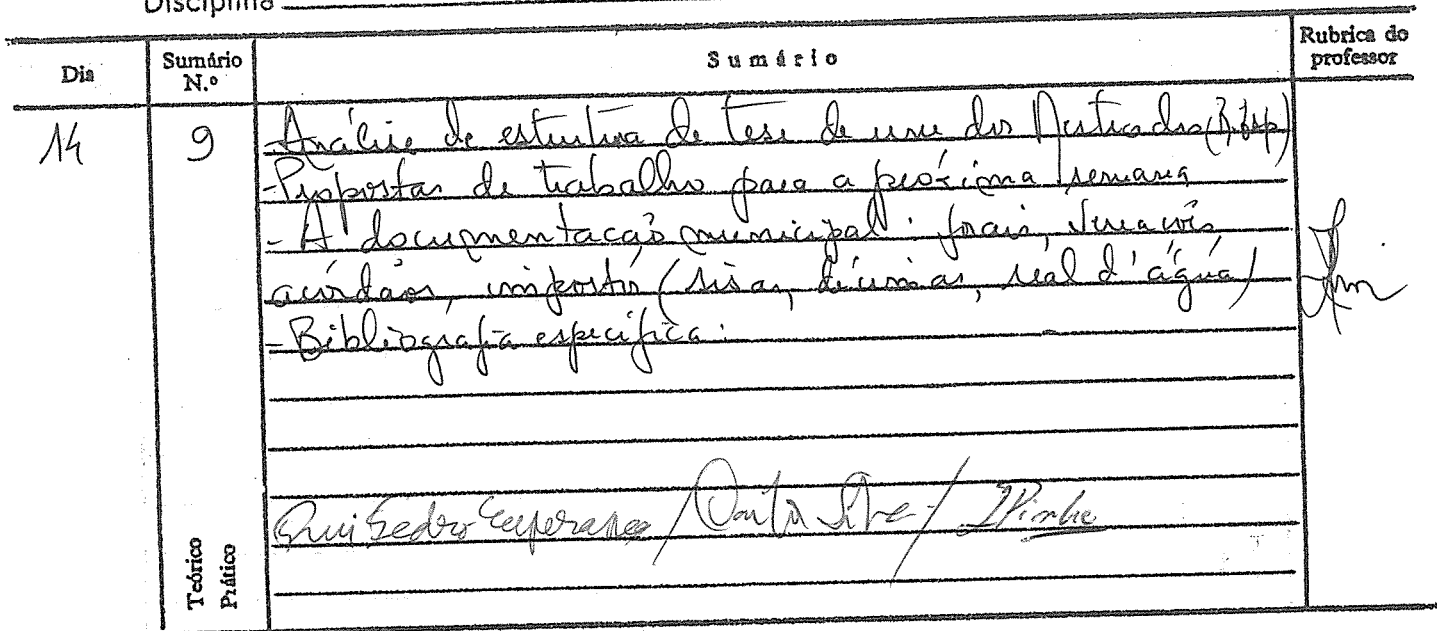 Disciplina
Dia
Sumário N.º
Sumário
Rubrica do professor
14
9
- Análise de estrutura de tese de um dos Mestrados
- Propostas de trabalho para a próxima semana
- A documentação municipal: forais, vereações
acórdãos, impostos (sisas, décimas, real d'água)
- Bibliografia específica.
Rui Pedro Esperança / Silva / Pinho
Teórico
Prático